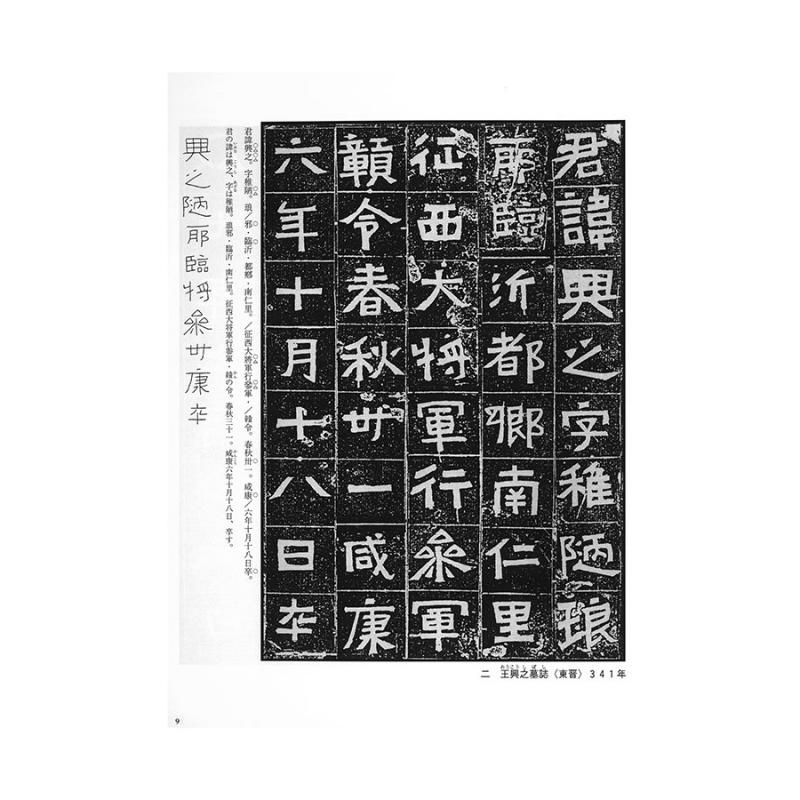 君諱興之字稚陋琅
耶臨沂都鄉南仁里
征西大將軍行叅軍
贑令春秋卅一咸康
六年十月十八日卒
二 王興之墓誌〈東晋〉341年
君諱興之。字稚陋。琅／邪・臨沂・都鄉・南仁里。／征西大將軍行參軍・／贛令。春秋卅一。咸康／六年十月十八日卒。
君の諱は興之、字は稚陋。琅邪・臨沂・南仁里。征西大将軍行参軍・贛の令。春秋三十一。咸康六年十月十八日、卒す。
興之陋耶臨將叅卅康卒
9